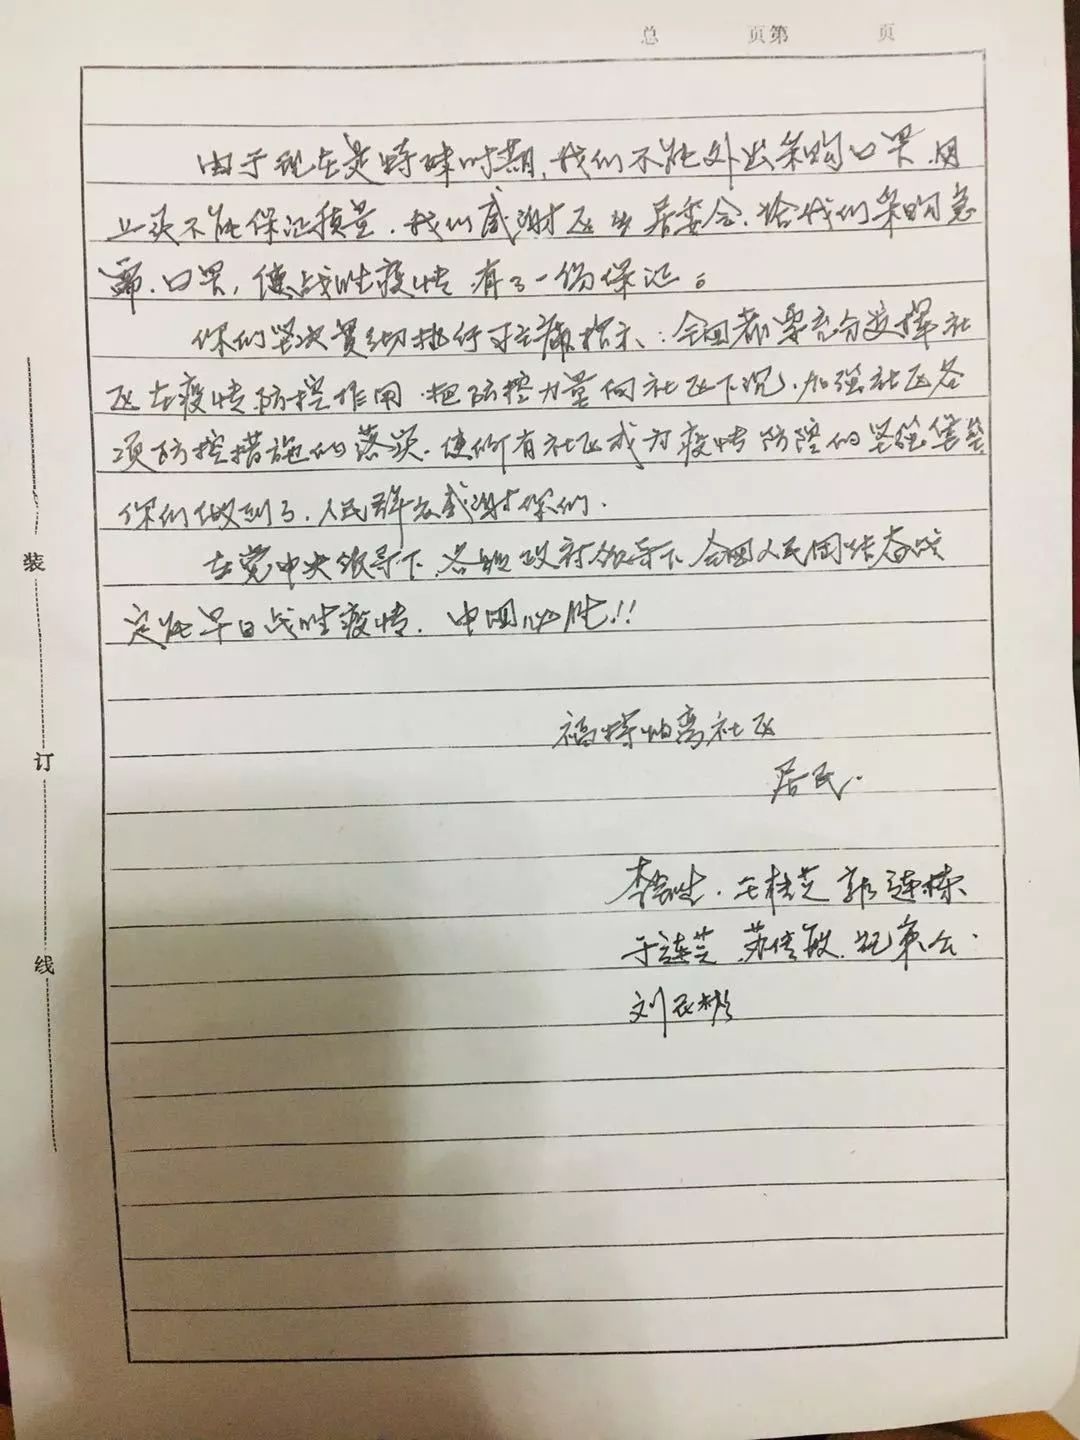 总 页第 页
由于现在是特殊时期，我们不能外出采购口罩，网
上买不能保证质量，我们感谢区乡居委会，给我们采购急
需，口罩，使战胜疫情有了一份保证。
你们坚决贯彻执行习主席指示：全国都要充分发挥社
区在疫情防控作用，把防控力量向社区下沉，加强社区各
项防控措施的落实，使所有社区成为疫情防控的坚强堡垒
你们做到了，人民群众感谢你们.
在党中央领导下，各级政府领导下，全国人民团结奋战
定能早日战胜疫情，中国必胜!!
福特怡湾社区
居民.
桂芝 郭连栋
于莲芝
刘
装
订
线